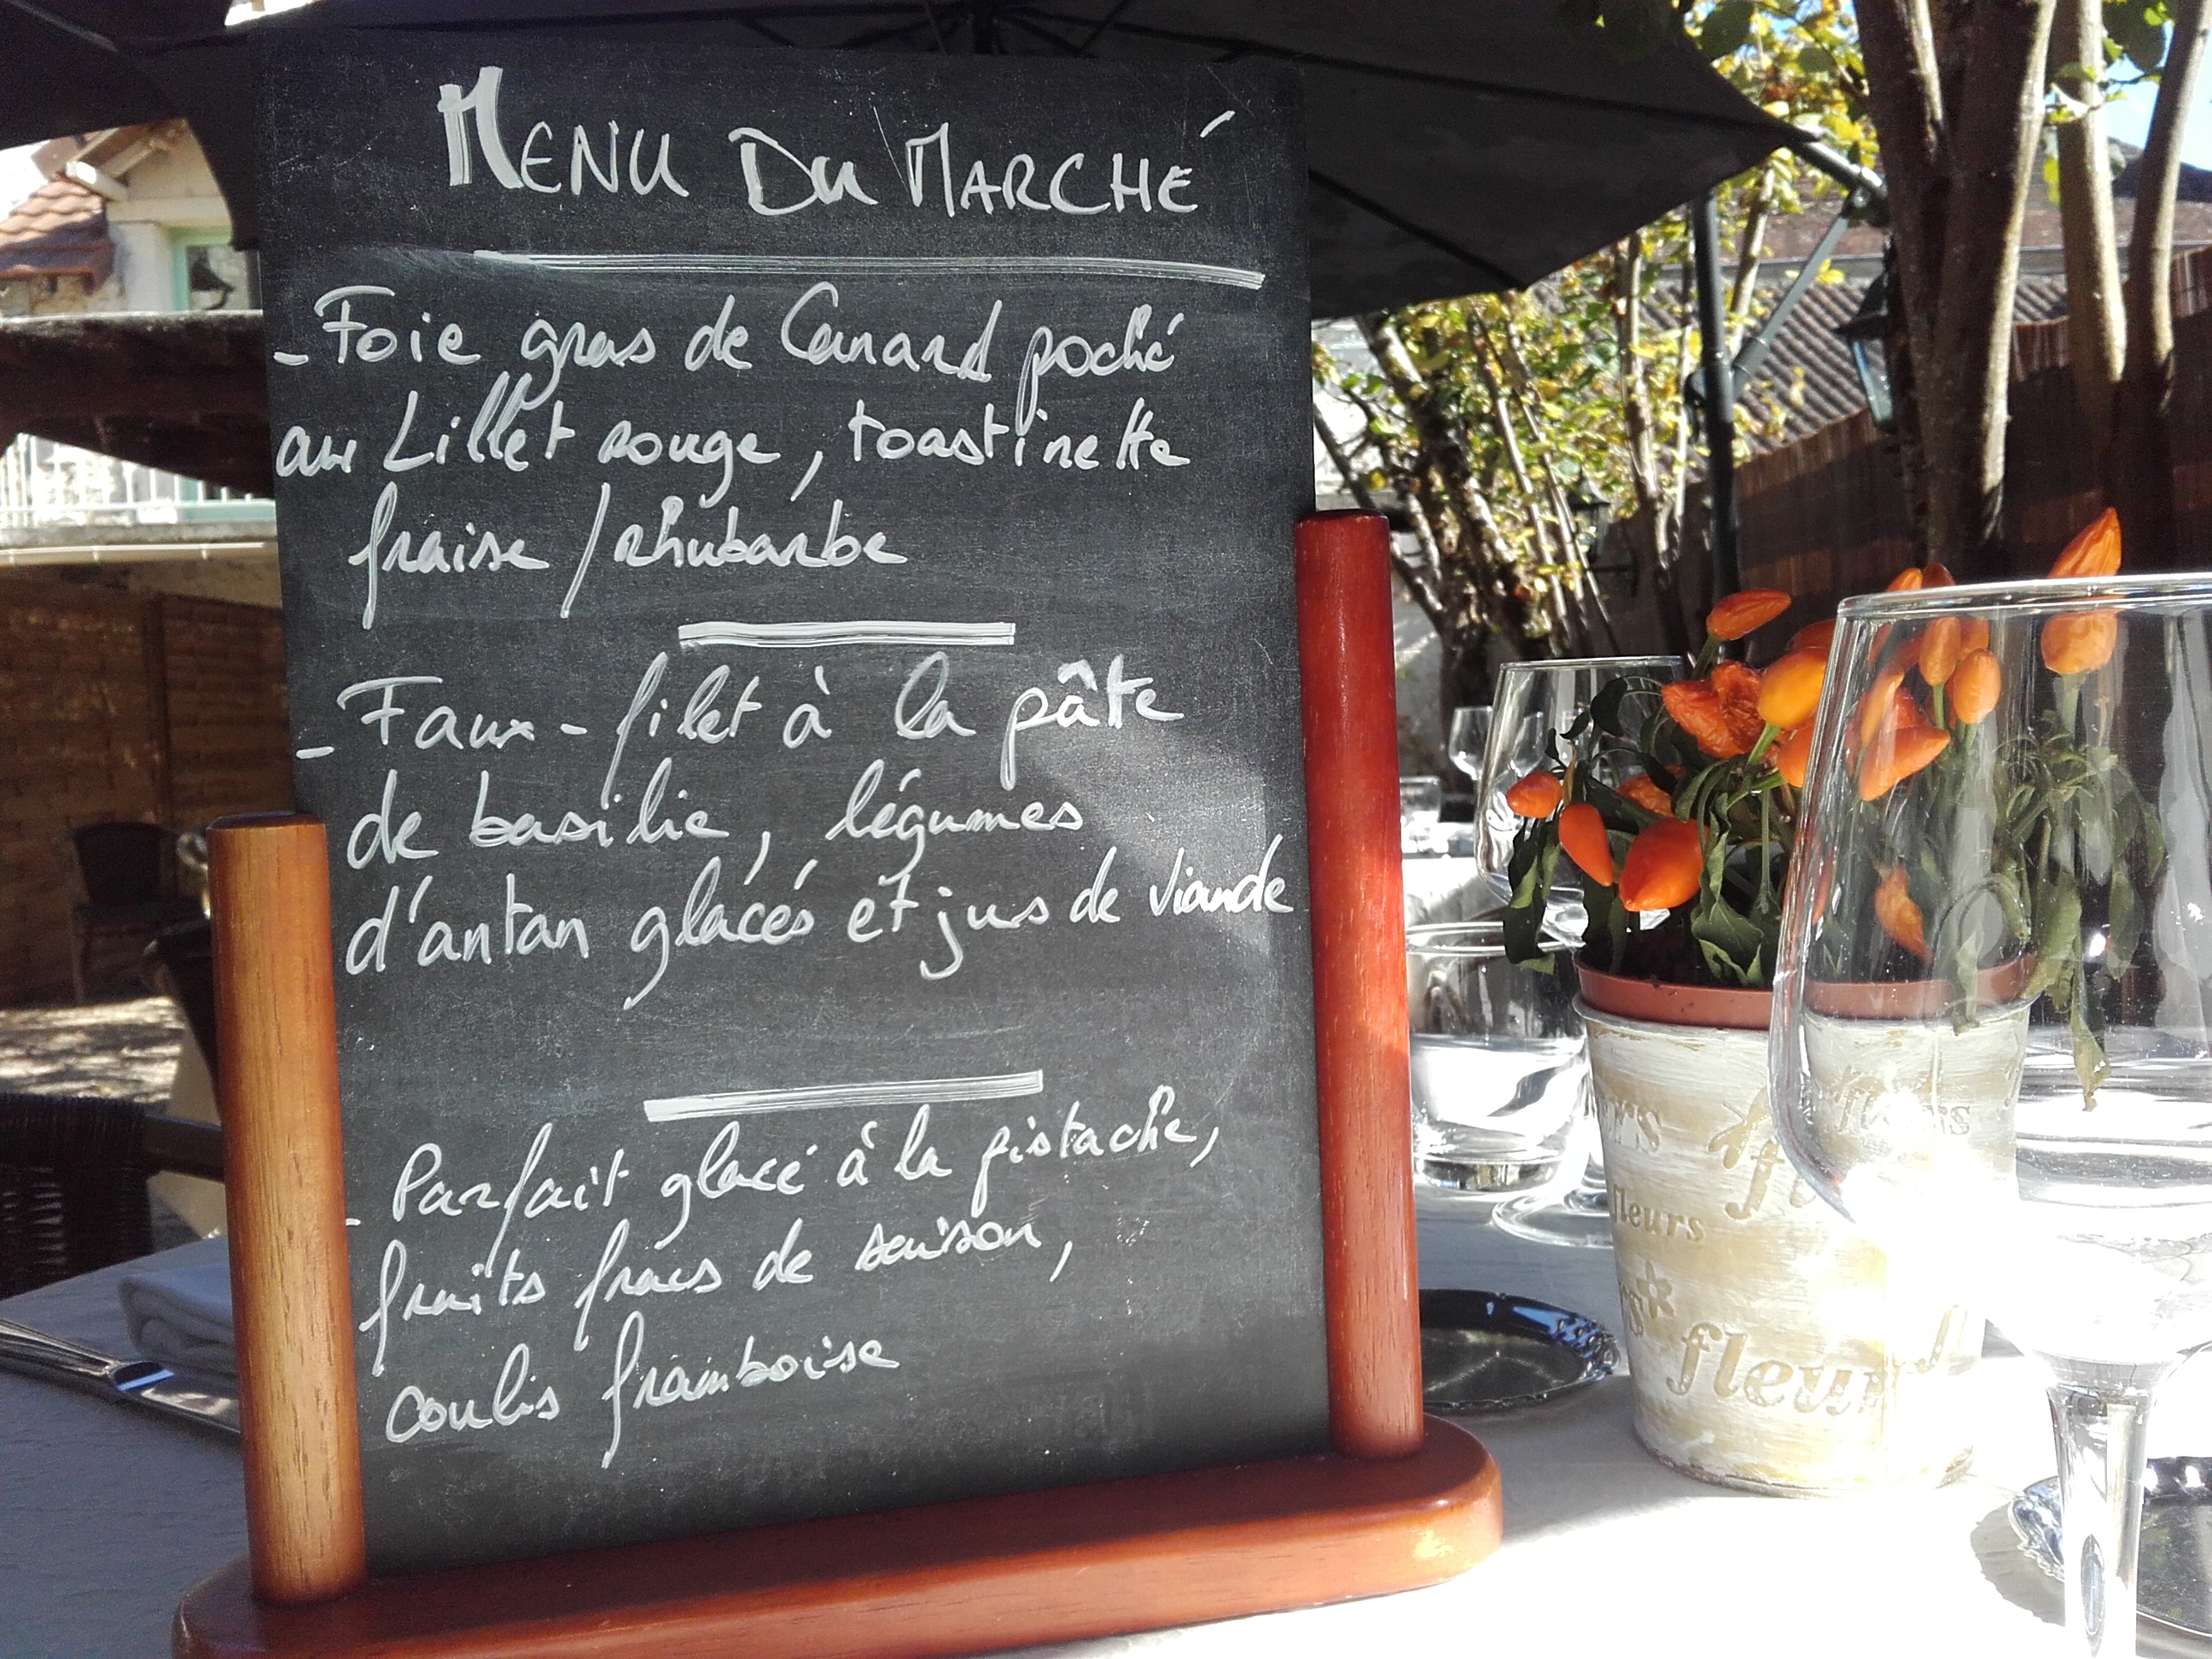 MENU DU MARCHÉ
- Foie gras de Canard poché
au Lillet rouge, toastinette
fraise / rhubarbe
- Faux-filet à la pâte
de basilic, légumes
d'antan glacés et jus de viande
- Parfait glacé à la pistache,
fruits frais de saison,
coulis framboise
fleurs
fleurs
fleurs